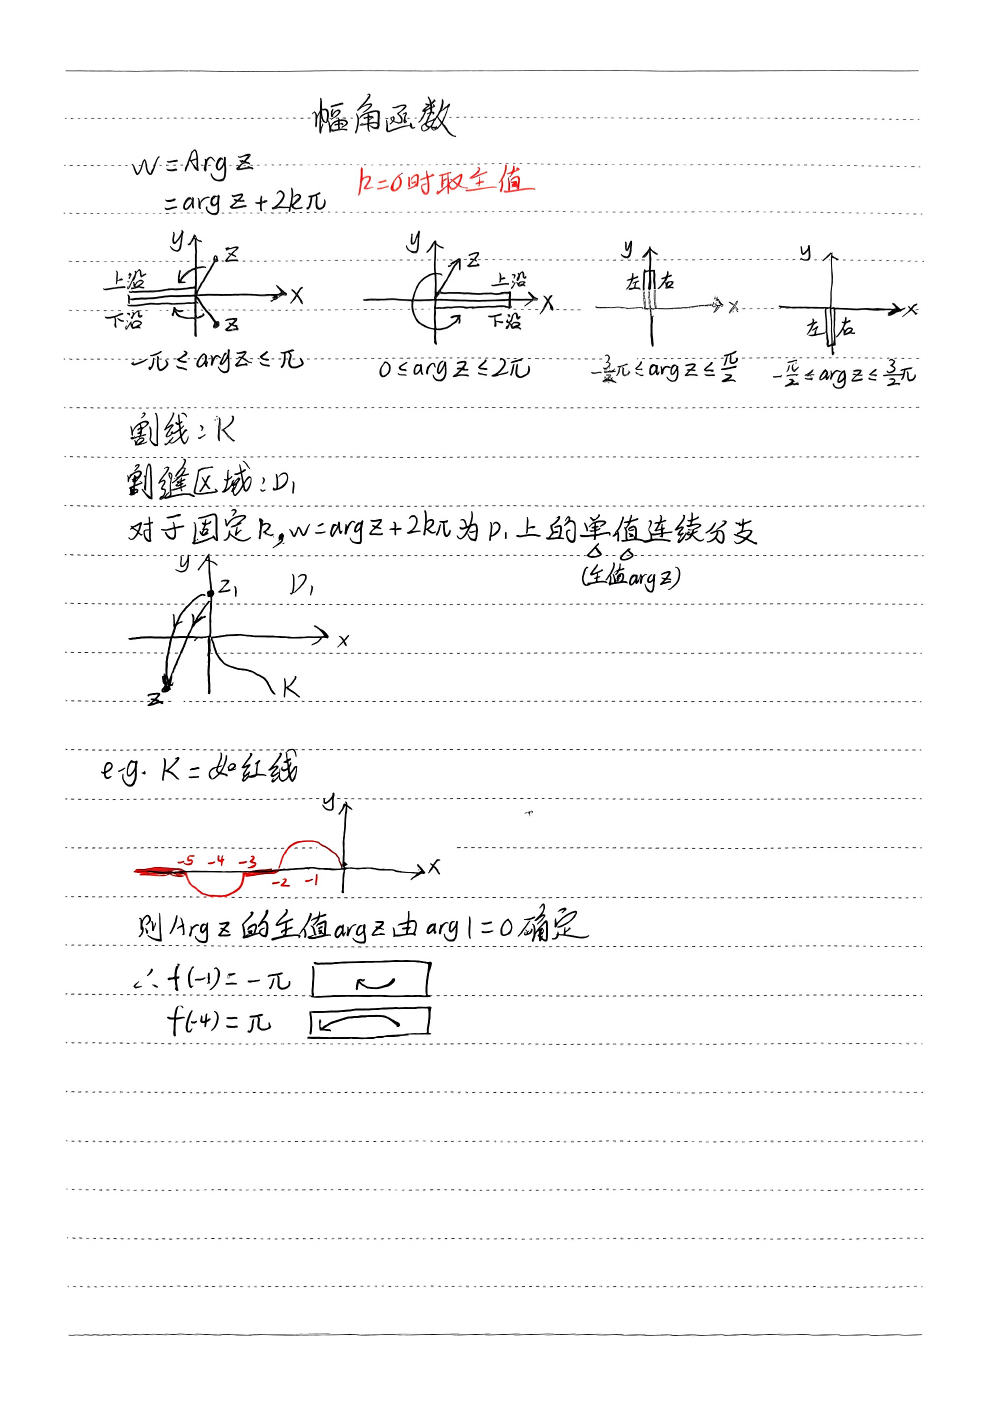 幅角函数
w = Arg z
= arg z + 2kπ
k=0时取主值
y z 上沿 x 下沿 z
y z 上沿 x 下沿
y 左 右 x
y x 左 右
-π ≤ arg z ≤ π
0 ≤ arg z ≤ 2π
-3/2π ≤ arg z ≤ π/2
-π/2 ≤ arg z ≤ 3/2π
割线：K
割缝区域：D₁
对于固定k，w=argz+2kπ为D₁上的单值连续分支
(主值argz)
y z₁ D₁
x
z K
e.g. K = 如红线
y
-5 -4 -3 x
-2 -1
则Argz的主值argz由arg1=0确定
∴ f(-1) = -π
f(-4) = π